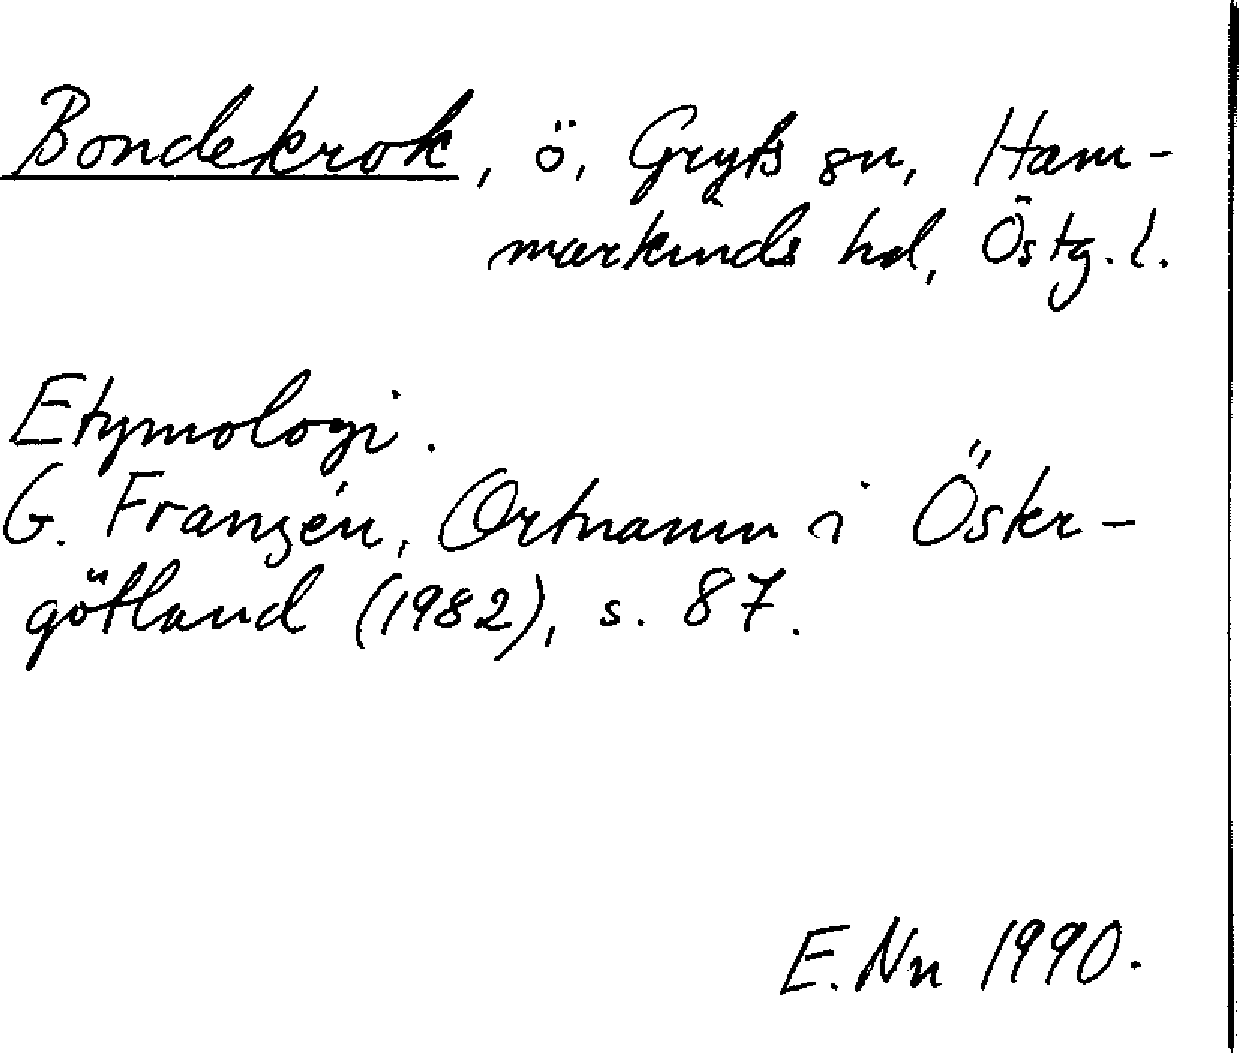 Bondekrok, ö, Gryts sn, Ham-
markinds hd, Östg. l.
Etymologi.
G. Franzén, Ortnamn i Öster-
götland (1982), s. 87.
E. Nn 1990.